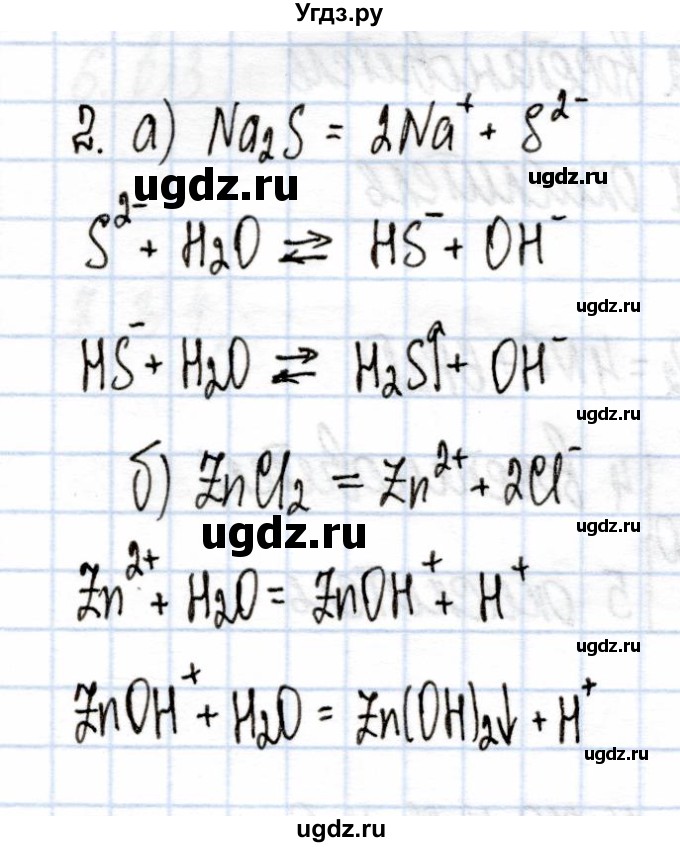 Угдз.ру
2. а) Na₂S = 2Na⁺ + S²⁻
ugdz.ru
ugdz.ru
S²⁻ + H₂O ⇄ HS⁻ + OH⁻
ugdz.ru
HS⁻ + H₂O ⇄ H₂S↑ + OH⁻
ugdz.ru
б) ZnCl₂ = Zn²⁺ + 2Cl⁻
ugdz.ru
ugdz.ru
Zn²⁺ + H₂O = ZnOH⁺ + H⁺
ugdz.ru
ZnOH⁺ + H₂O = Zn(OH)₂↓ + H⁺
ugdz.ru
ugdz.ru